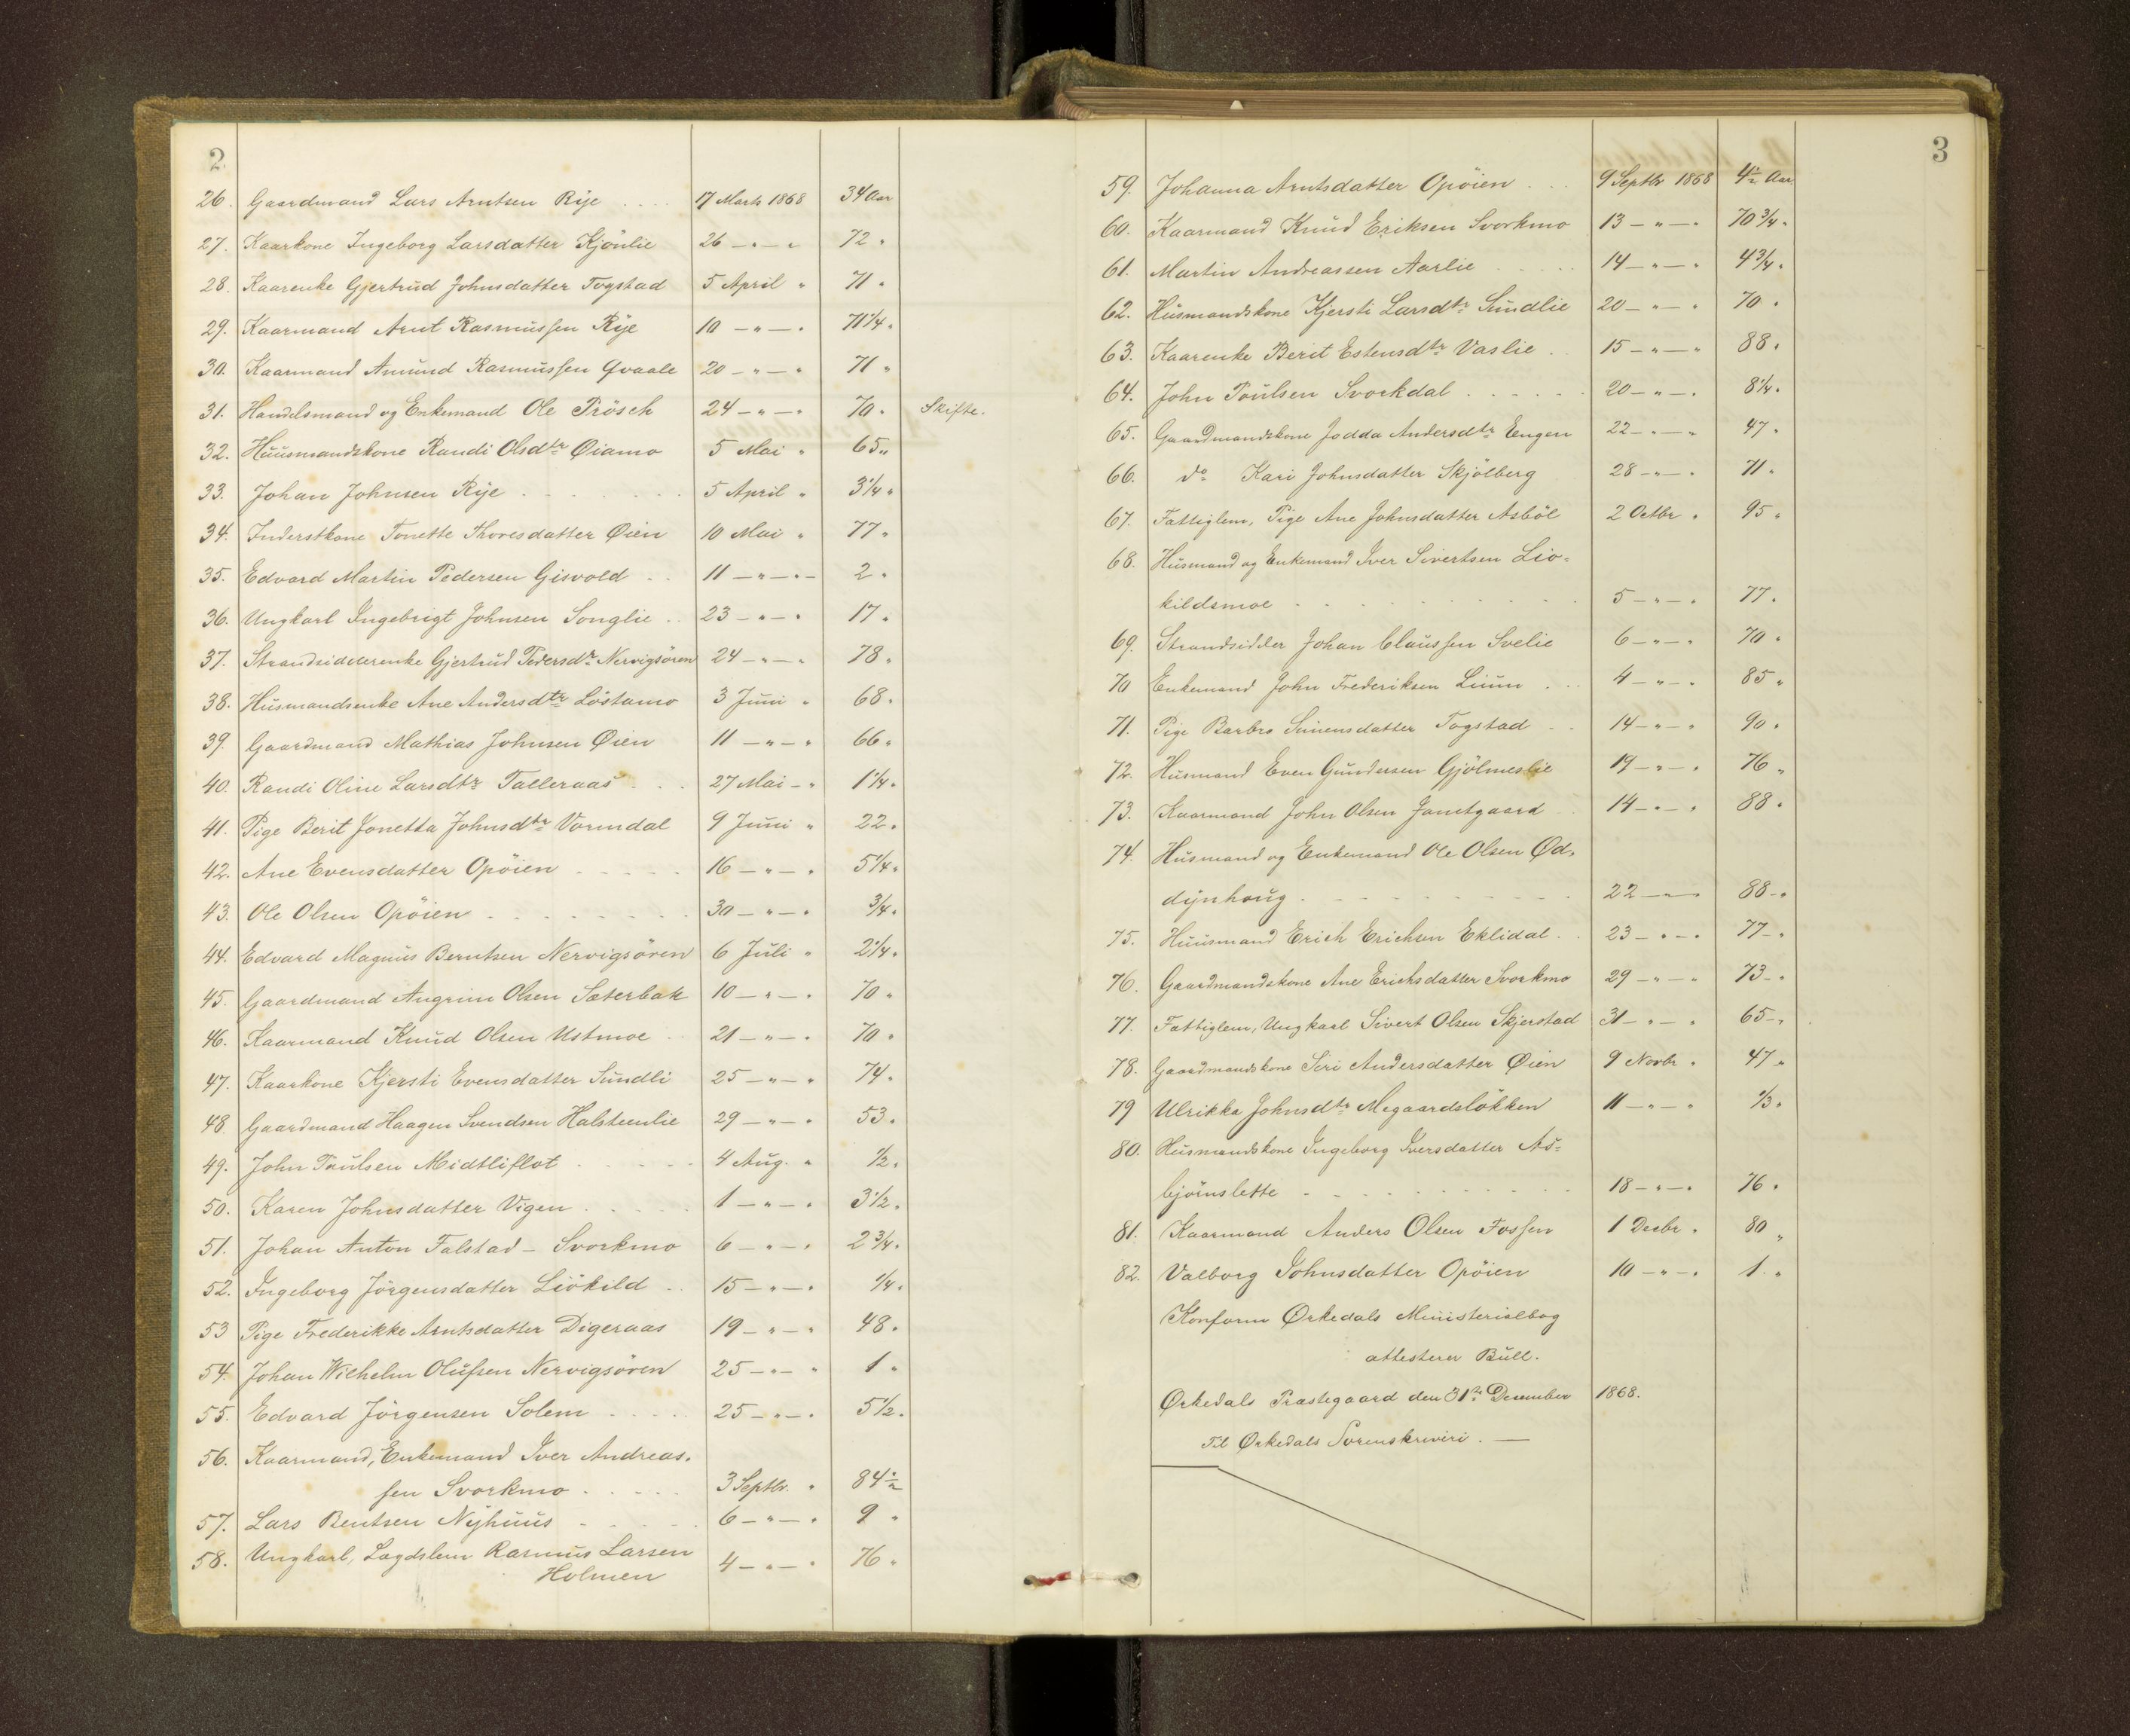 2
26. Gaardmand Lars Arntsen Rije .... 17 Marts 1868 34 Aar
27. Kaarkone Ingeborg Larsdatter Kjönlie 26 — " — " 72 "
28. Kaarenke Gjertrud Johnsdatter Togstad 5 April " 71 "
29. Kaarmand Arnt Rasmussen Rije 10 — " — " 71 1/4 "
30. Kaarmand Amund Rasmussen Qvaale 20 — " — " 71 "
31. Handelsmand og Enkemand Ole Prösch 24 — " — " 70 " Skifte.
32. Huusmandskone Randi Olsdtr Øiamo 5 Mai " 65 "
33. Johan Johnsen Rije . . . . . 5 April " 3 1/4 "
34. Inderstkone Tonette Thoresdatter Øien 10 Mai " 77 "
35. Edvard Martin Pedersen Gisvold . . 11 — " — " 2 "
36. Ungkarl Ingebrigt Johnsen Songlie . . 23 — " — " 17 "
37. Strandsidderenke Gjertrud Pedersdr Nervigsören 24 — " — " 78 "
38. Husmandsenke Ane Andersdtr Löstamo 3 Juni " 68 "
39. Gaardmand Mathias Johnsen Øien 11 — " — " 66 "
40. Randi Oline Larsdtr Talleraas . . . 27 Mai — " 1 1/4 "
41. Pige Berit Jonetta Johnsdtr Vormdal 9 Juni " 22 "
42. Ane Evensdatter Opöien . . . . . 16 — " — " 5 1/4 "
43. Ole Olsen Opöien . . . . . . . 30 — " — " 3/4 "
44. Edvard Magnus Berntsen Nervigsören 6 Juli " 2 1/4 "
45. Gaardmand Angrim Olsen Sæterbak 10 — " — " 70 "
46. Kaarmand Knud Olsen Ustmoe . . 21 — " — " 70 "
47. Kaarkone Kjersti Evensdatter Sundli 25 — " — " 74 "
48. Gaardmand Haagen Svendsen Halsteenlie 29 — " — " 53 "
49. John Paulsen Midtliflot . . . . . 4 Aug. " 1/2 "
50. Karen Johnsdatter Vigen . . . . . 1 — " — " 3 1/2 "
51. Johan Anton Falstad - Svorkmo 6 — " — " 2 3/4 "
52. Ingeborg Jörgensdatter Liökild . . 15 — " — " 1/4 "
53 Pige Frederikke Arntsdatter Digeraas 19 — " — " 48 "
54. Johan Wilhelm Olufsen Nervigsören 25 — " — " 1 "
55. Edvard Jörgensen Solem . . . . 25 — " — " 5 1/2 "
56. Kaarmand, Enkemand Iver Andreas-
sen Svorkmo . . . . . 3 Septbr. " 84 1/2
57. Lars Bentsen Nyhuus . . . . . 6 — " — " 9 "
58. Ungkarl, Lægdslem Rasmus Larsen
Holmen 4 — " — " 76 "
3
59. Johanna Arntsdatter Opöien . . . 9 Septbr 1868 4 1/2 Aar
60. Kaarmand Knud Eriksen Svorkmo 13 — " — " 70 3/4 "
61. Martin Andreassen Aarlie . . . . . 14 — " — " 4 3/4 "
62. Husmandskone Kjersti Larsdtr Sundlie 20 — " — " 70 "
63. Kaarenke Berit Estensdtr Vaslie . . 15 — " — " 88 "
64. John Paulsen Svorkdal . . . . . . 20 — " — " 8 1/4 "
65. Gaardmandskone Jodda Andersdtr Engen 22 — " — " 47 "
66. do Kari Johnsdatter Skjölberg 28 — " — " 71 "
67. Fattiglem, Pige Ane Johnsdatter Asböl 2 Octbr " 95 "
68. Husmand og Enkemand Iver Sivertsen Lio-
kildsmoe . . . . . . . . . 5 — " — " 77 "
69. Strandsidder Johan Claussen Svelie 6 — " — " 70 "
70 Enkemand John Frederiksen Lium . . . 4 — " — " 85 "
71. Pige Barbro Simensdatter Togstad . . 14 — " — " 90 "
72. Husmand Even Gundersen Gjölmeslie 19 — " — " 76 "
73. Kaarmand John Olsen Jamtgaard 14 — " — " 88 "
74. Husmand og Enkemand Ole Olsen Ød-
dynhoug . . . . . . . . 22 — " — 88 — "
75. Huusmand Erich Erichsen Eklidal . . 23 — " — " 77 — "
76. Gaardmandskone Ane Erichsdatter Svorkmo 29 — " — " 73 — "
77. Fattiglem, Ungkarl Sivert Olsen Skjerstad 31 — " — " 65 — "
78. Gaardmandskone Siri Andersdatter Øien 9 Novbr " 47 "
79 Ulrikka Johnsdtr Megaardslökken 11 — " — " 1/3 "
80. Husmandskone Ingeborg Iversdatter As-
björnslette . . . . . . . . 18 — " — " 76 "
81. Kaarmand Anders Olsen Fossen 1 Decbr " 80 "
82. Valborg Johnsdatter Opöien 10 — " — " 1 "
Konform Ørkedals Ministerialbog
attesterer Bull.
Ørkedals Præstegaard den 31te December 1868.
Til Ørkedals Sorenskriveri. —